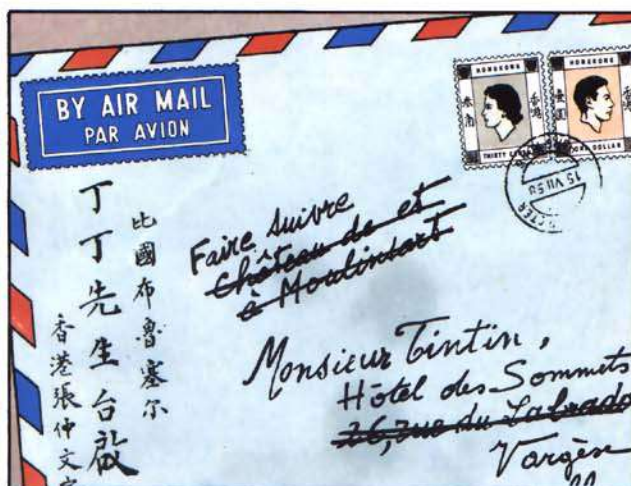 BY AIR MAIL
PAR AVION
HONGKONG
香港
THIRTY
HONGKONG
香港
壹圓
DOLLAR
15 VII 58
比國布魯塞尔
丁丁先生台啟
香港張仲文
Faire suivre
Château de et
à Moulinsart
Monsieur Tintin,
Hôtel des Sommets
26, rue du Labrado
Vargèse